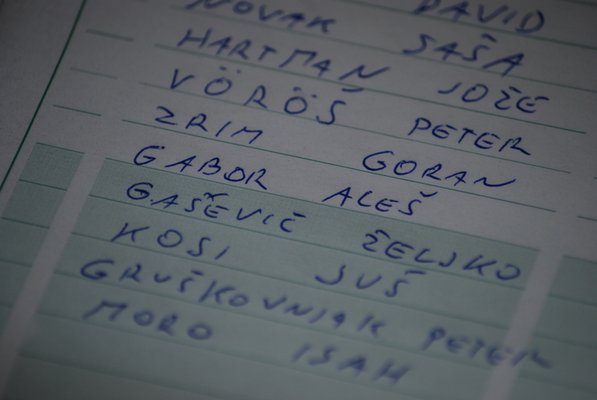 NOVAK DAVID
HARTMAN SAŠA
VÖRÖŠ JOŽE
ZRIM PETER
GABOR GORAN
GAŠEVIČ ALEŠ
KOSI ŽELJKO
GRUŠKOVNJAK JUŠ
MORO PETER
ISAH